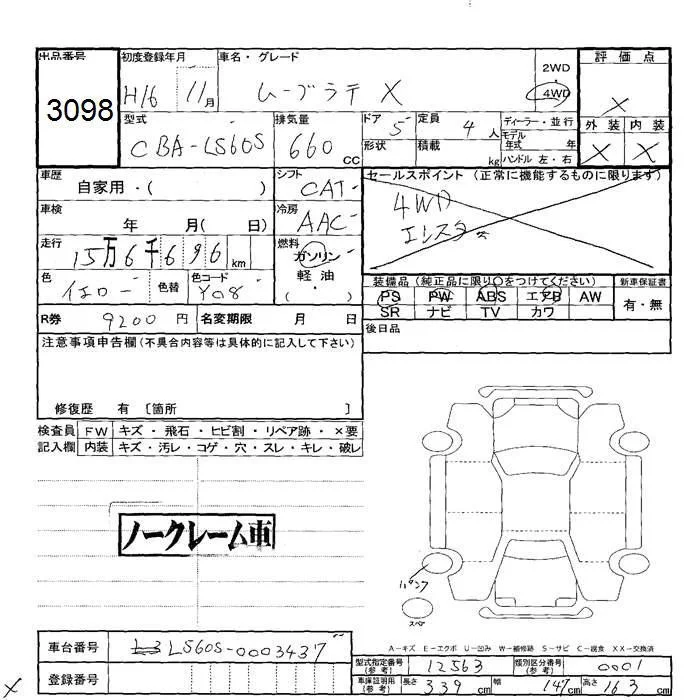 出品番号 初度登録年月 車名・グレード 2WD 評価点
3098 H16 11月 ムーブラテ X 4WD ×
型式 排気量 ドア 5 定員 4人 ディーラー・並行 外装 内装
CBA-L560S 660cc 形状 積載 kg モデル年式 年 × ×
ハンドル 左・右
車歴 シフト セールスポイント (正常に機能するものに限ります)
自家用・( ) CAT
車検 冷房 4WD
年 月( 日) AAC
走行 燃料
15万6千696km ガソリン
色 色替 色コード 軽油 装備品 (純正品に限り○をつけてください) 新車保証書
イエロー Y08 ( ・ ) PS PW ABS エアB AW 有・無
R券 9200円 名変期限 月 日 SR ナビ TV カワ
注意事項申告欄(不具合内容等は具体的に記入して下さい) 後日品
修復歴 有 [箇所 ]
検査員 FW キズ・飛石・ヒビ割・リペア跡・×要
記入欄 内装 キズ・汚レ・コゲ・穴・スレ・キレ・破レ
ノークレーム車
パンク
スペア
車台番号 L560S-0003437
A-キズ E-エクボ U-凹み W-補修跡 S-サビ C-腐食 XX-交換済
型式指定番号(参考) 12563 類別区分番号(参考) 0001
登録番号 車庫証明用(参考) 長さ 339cm 幅 147cm 高さ 163cm
×